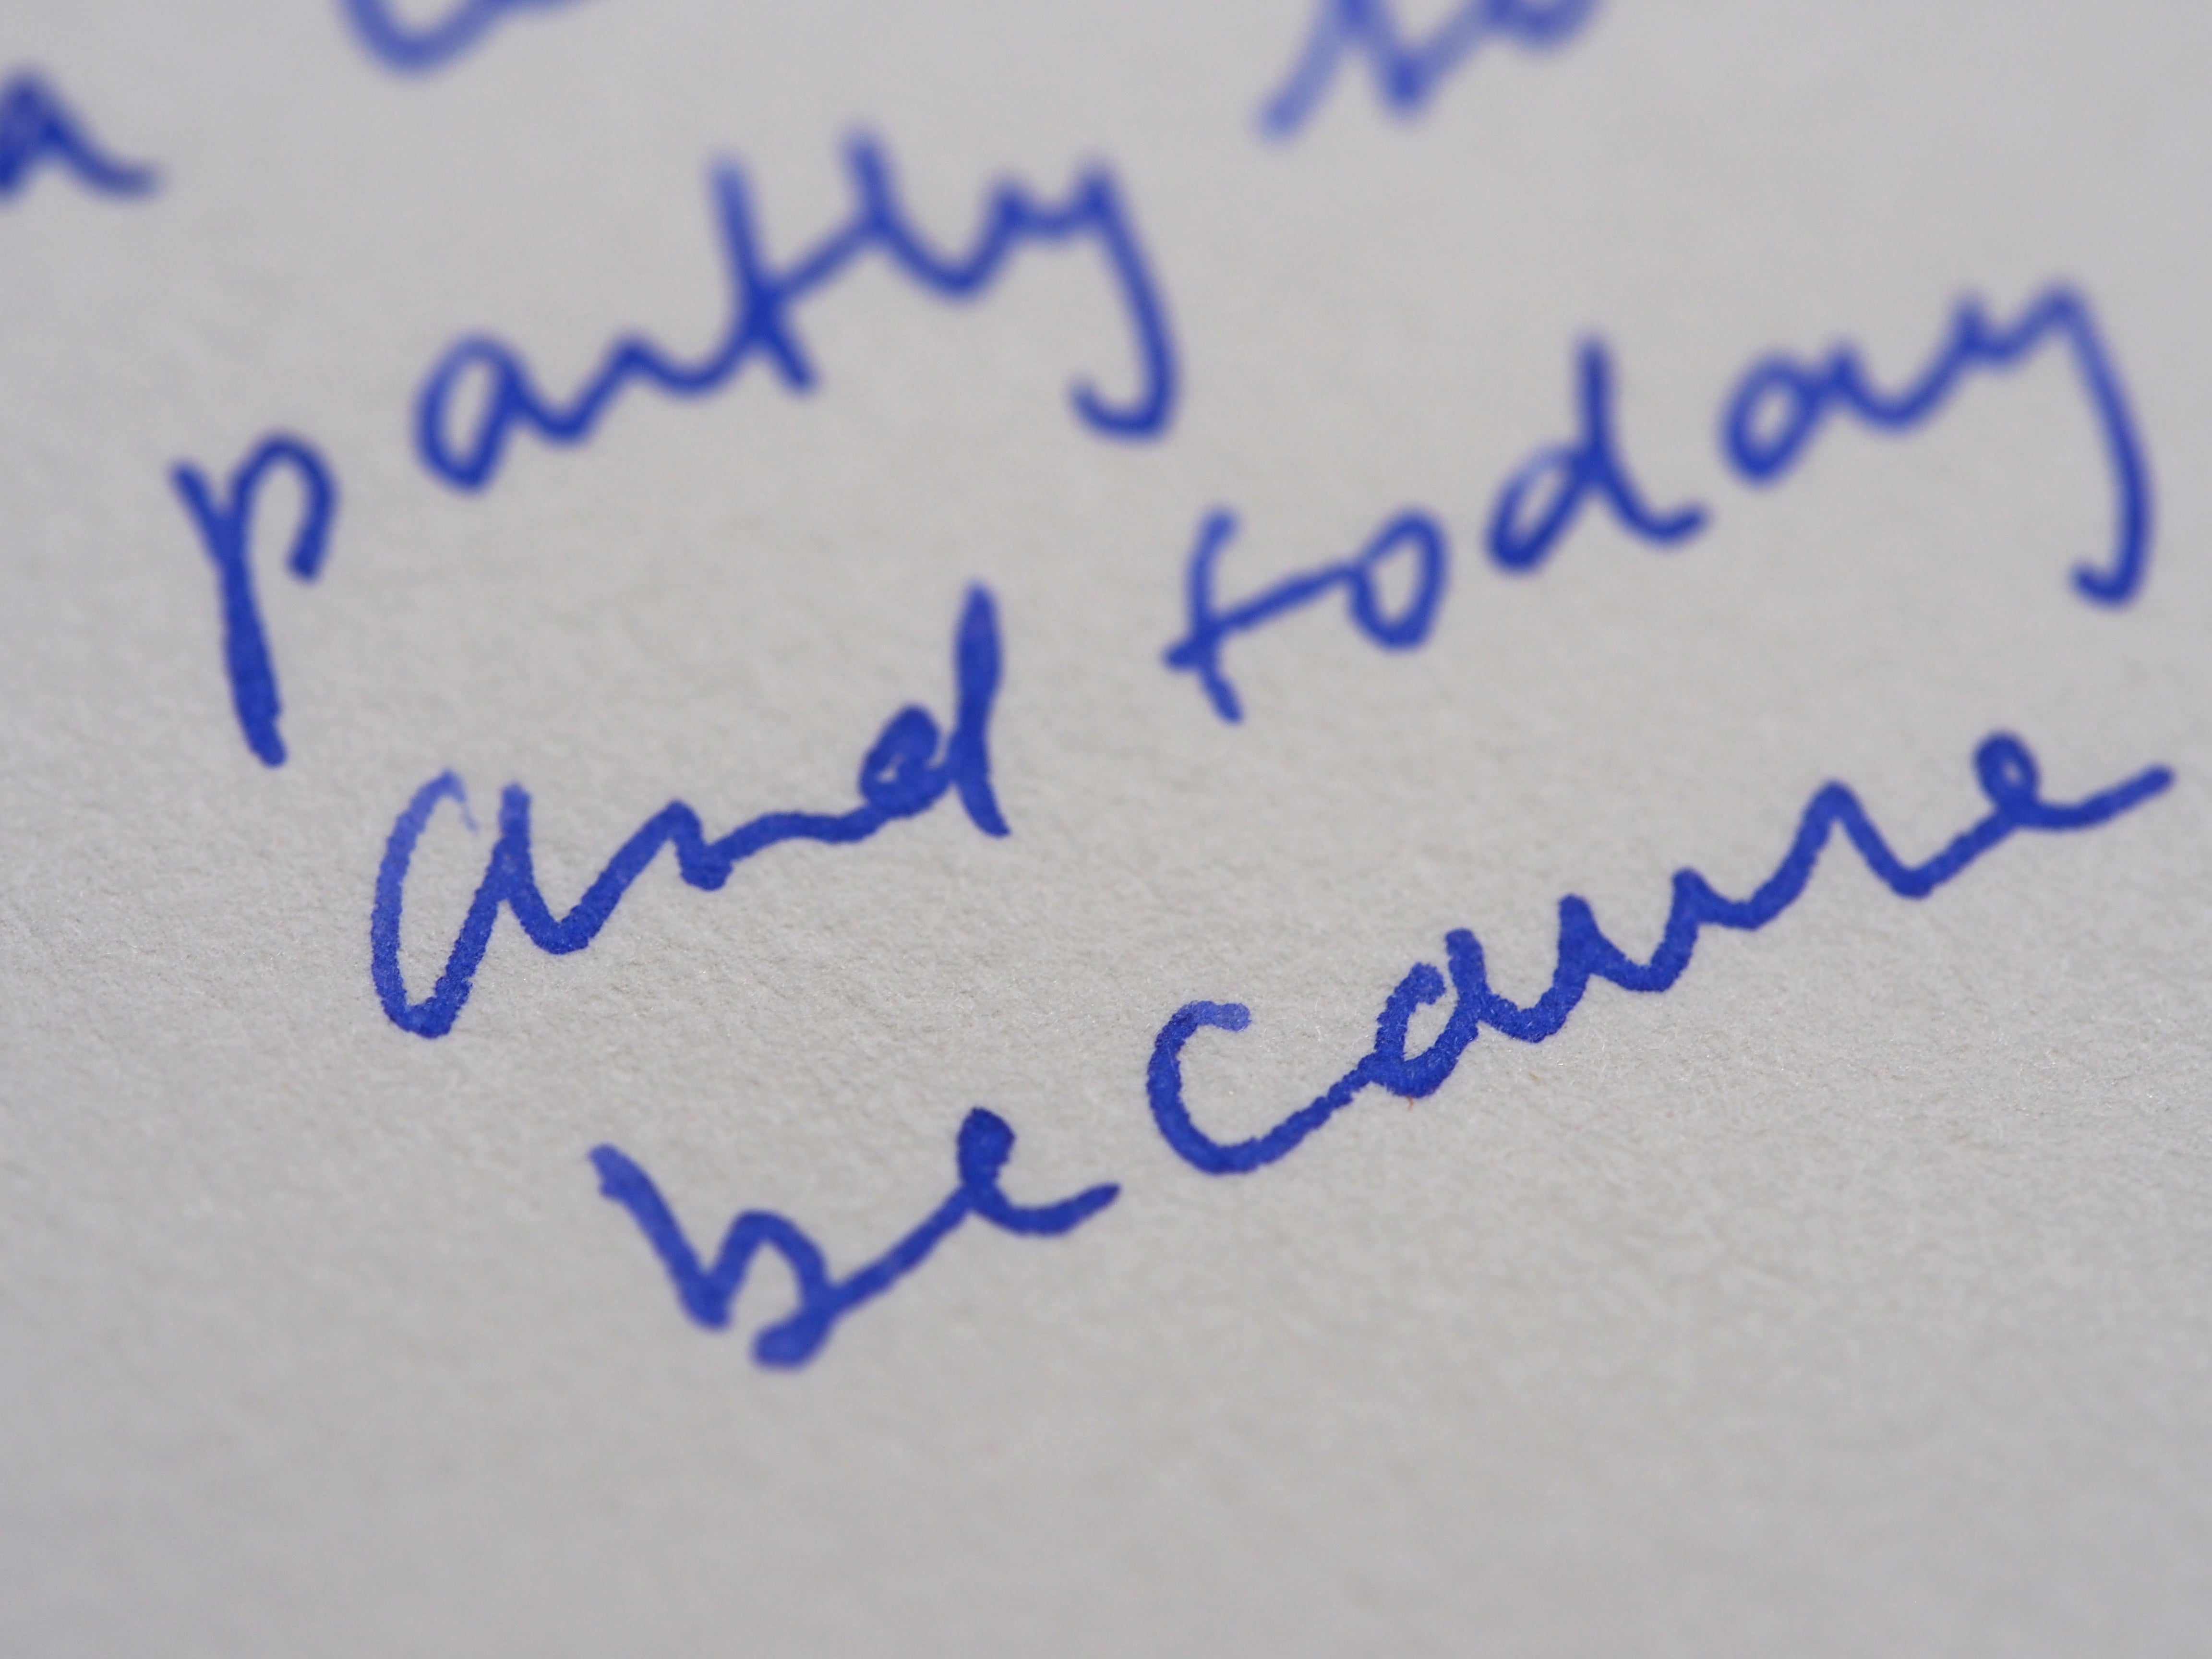 partly
and today
because